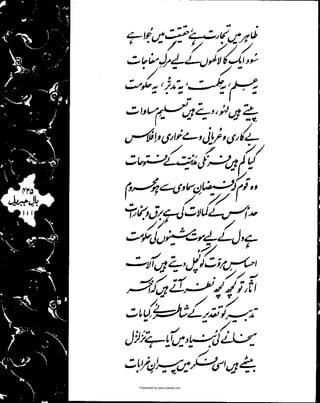 ظاہر میں تجارت ہے، حقیقت میں جوا ہے
سود ایک کا لاکھوں کے لیے مرگِ مفاجات
یہ علم، یہ حکمت، یہ تدبر، یہ حکومت
پیتے ہیں لہو، دیتے ہیں تعلیمِ مساوات
بے کاری و عریانی و مے خواری و افلاس
کیا کم ہیں فرنگی مدنیت کے فتوحات
وہ قوم کہ فیضانِ سماوی سے ہو محروم
حد اس کے کمالات کی ہے برق و بخارات
ہے دل کے لیے موت مشینوں کی حکومت
احساسِ مروت کو کچل دیتے ہیں آلات
آثار تو کچھ کچھ نظر آتے ہیں کہ آخر
تدبیر کو تقدیر کے شاطر نے کیا مات
میخانے کی بنیاد میں آیا ہے تزلزل
بیٹھے ہیں اسی فکر میں پیرانِ خرابات
۴۳۵
بالِ جبریل
۱۱۱
Presented by www.ziaraat.com